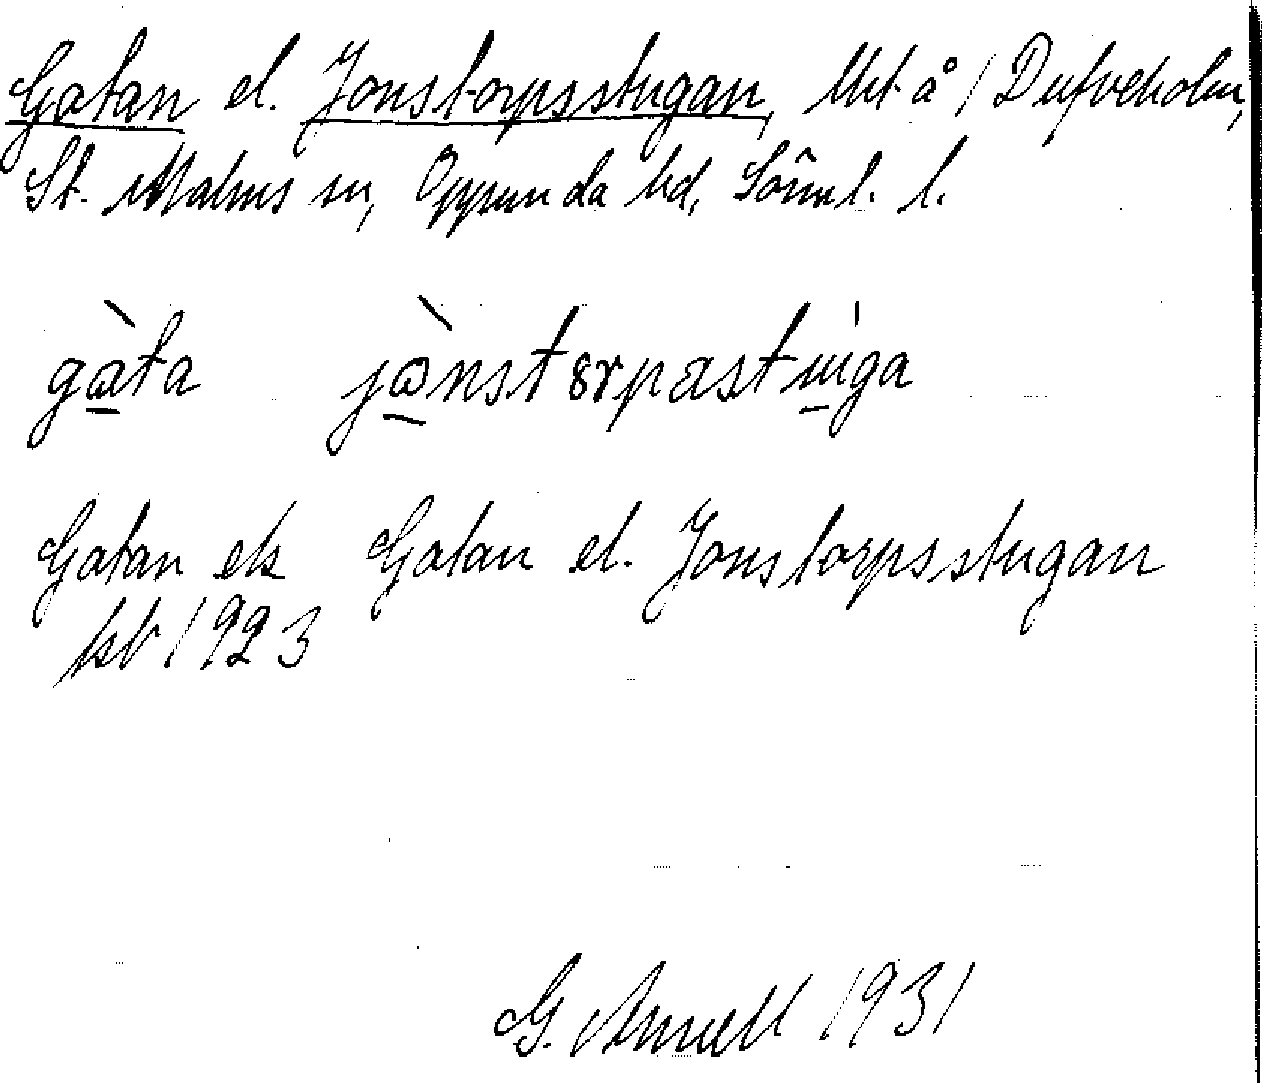 Gatan el. Jonstorpsstugan, lht å / Dufveholm,
St. Malms sn, Oppunda hd, Sörml. l.
gàta jònstɘrpastùga
Gatan ek Gatan el. Jonstorpsstugan
jsb 1923
G. Arnell 1931